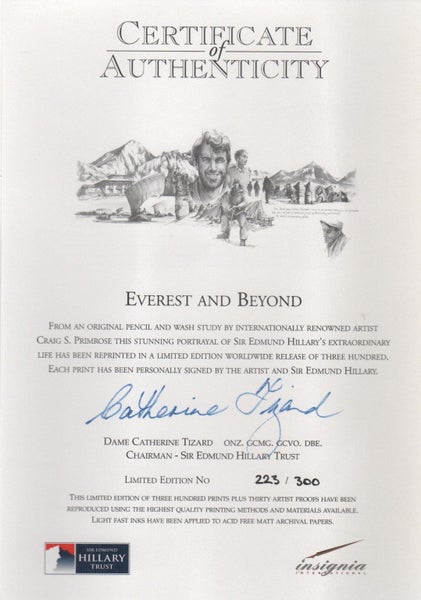 CERTIFICATE
of
AUTHENTICITY
EVEREST AND BEYOND
FROM AN ORIGINAL PENCIL AND WASH STUDY BY INTERNATIONALLY RENOWNED ARTIST
CRAIG S. PRIMROSE THIS STUNNING PORTRAYAL OF SIR EDMUND HILLARY'S EXTRAORDINARY
LIFE HAS BEEN REPRINTED IN A LIMITED EDITION WORLDWIDE RELEASE OF THREE HUNDRED.
EACH PRINT HAS BEEN PERSONALLY SIGNED BY THE ARTIST AND SIR EDMUND HILLARY.
Catherine Tizard
DAME CATHERINE TIZARD ONZ. GCMG. GCVO. DBE.
CHAIRMAN - SIR EDMUND HILLARY TRUST
LIMITED EDITION NO 223 / 300
THIS LIMITED EDITION OF THREE HUNDRED PRINTS PLUS THIRTY ARTIST PROOFS HAVE BEEN
REPRODUCED USING THE HIGHEST QUALITY PRINTING METHODS AND MATERIALS AVAILABLE.
LIGHT FAST INKS HAVE BEEN APPLIED TO ACID FREE MATT ARCHIVAL PAPERS.
SIR EDMUND
HILLARY
TRUST
insignia
INTERNATIONAL